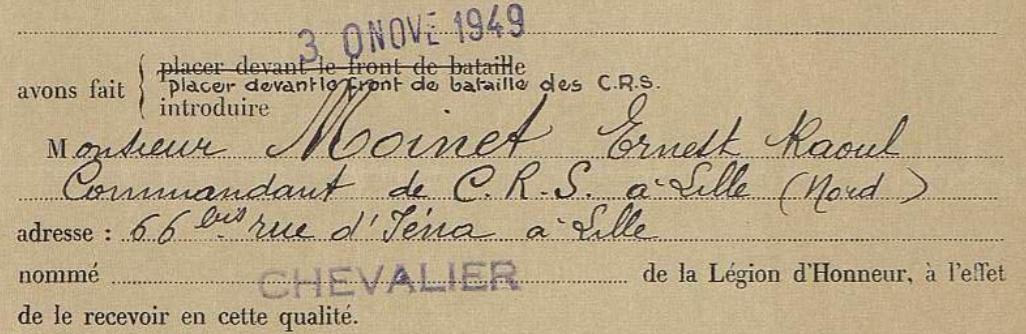 3 0 NOVE 1949
placer devant le front de bataille
avons fait placer devant le front de bataille des C.R.S.
introduire
Monsieur Moinet Ernest Raoul
Commandant de C.R.S. à Lille (Nord)
adresse : 66 bis rue d'Iéna à Lille
nommé CHEVALIER de la Légion d'Honneur, à l'effet
de le recevoir en cette qualité.